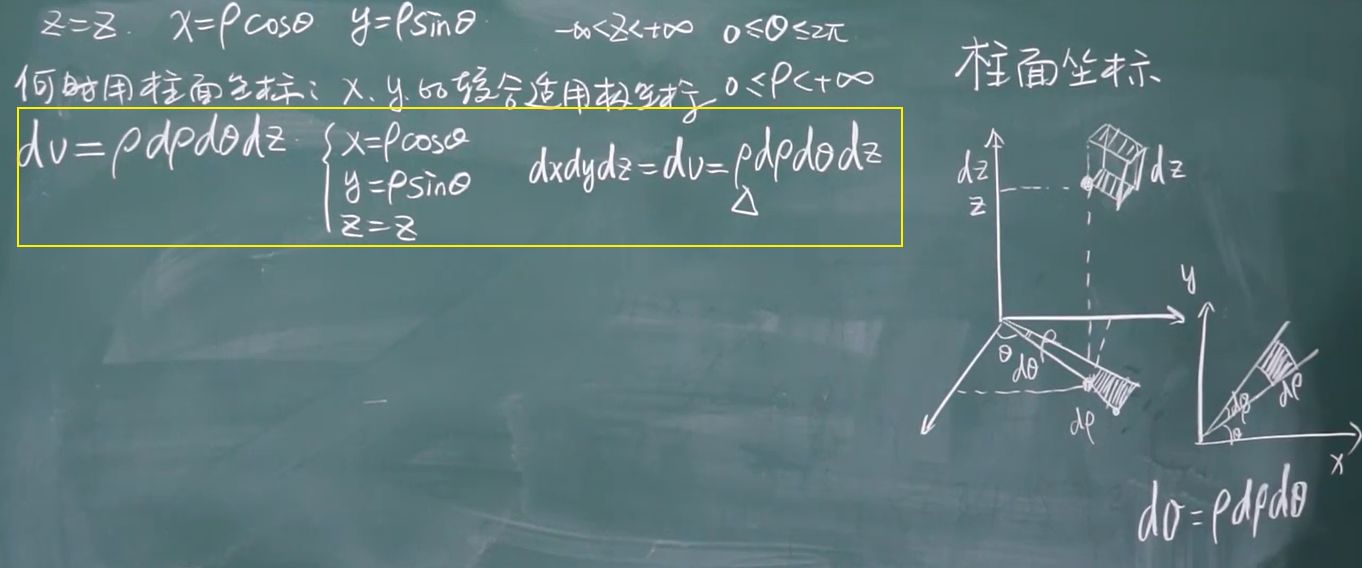 z=z. x=ρcosθ y=ρsinθ. -∞<z<+∞ 0≤θ≤2π
何时用柱面坐标: x、y的结合适用极坐标 0≤ρ<+∞
dv=ρdρdθdz. { x=ρcosθ
y=ρsinθ
z=z
dxdydz=dv=ρdρdθdz
△
柱面坐标
dz
z
dz
θ
dθ
ρ
dρ
y
dθ
θ
dρ
x
dσ=ρdρdθ